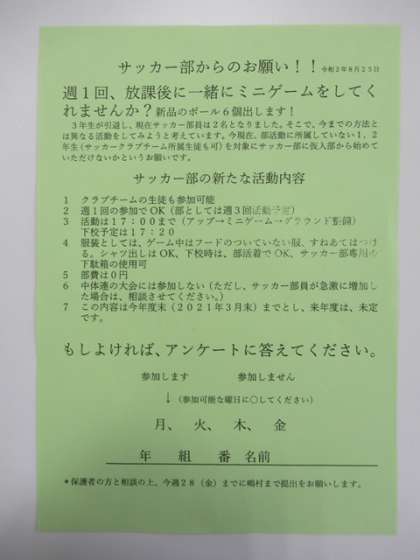 サッカー部からのお願い！！ 令和２年８月２５日
週１回、放課後に一緒にミニゲームをしてく
れませんか？新品のボール６個出します！
３年生が引退し、現在サッカー部員は２名となりました。そこで、今までの方法と
は異なる活動をしてみようと考えています。今現在、部活動に所属していない１，２
年生（サッカークラブチーム所属生徒も可）を対象にサッカー部に仮入部から始めて
いただけないかというお願いです。
サッカー部の新たな活動内容
１ クラブチームの生徒も参加可能
２ 週１回の参加でＯＫ（部としては週３回活動予定）
３ 活動は１７：００まで（アップ→ミニゲーム→グラウンド整備）
下校予定は１７：２０
４ 服装としては、ゲーム中はフードのついていない服、すねあてはつけ
る。シャツ出しはＯＫ、下校時は、部活着でＯＫ、サッカー部専用の
下駄箱の使用可
５ 部費は０円
６ 中体連の大会には参加しない（ただし、サッカー部員が急激に増加し
た場合は、相談させてください。）
７ この内容は今年度末（２０２１年３月末）までとし、来年度は、未定
です。
もしよければ、アンケートに答えてください。
参加します 参加しません
↓（参加可能な曜日に○してください）
月、 火、 木、 金
年 組 番 名前
＊保護者の方と相談の上、今週２８（金）までに嶋村まで提出をお願いします。